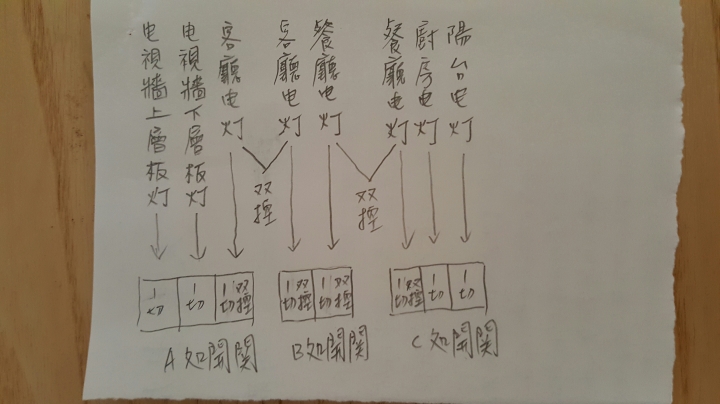 电視牆上層板灯
电視牆下層板灯
客廳电灯
客廳电灯
餐廳电灯
餐廳电灯
厨房电灯
陽台电灯
双控
双控
1切
1切
1切双控
1切双控
1切双控
1切双控
1切
1切
A処開關
B処開關
C処開關